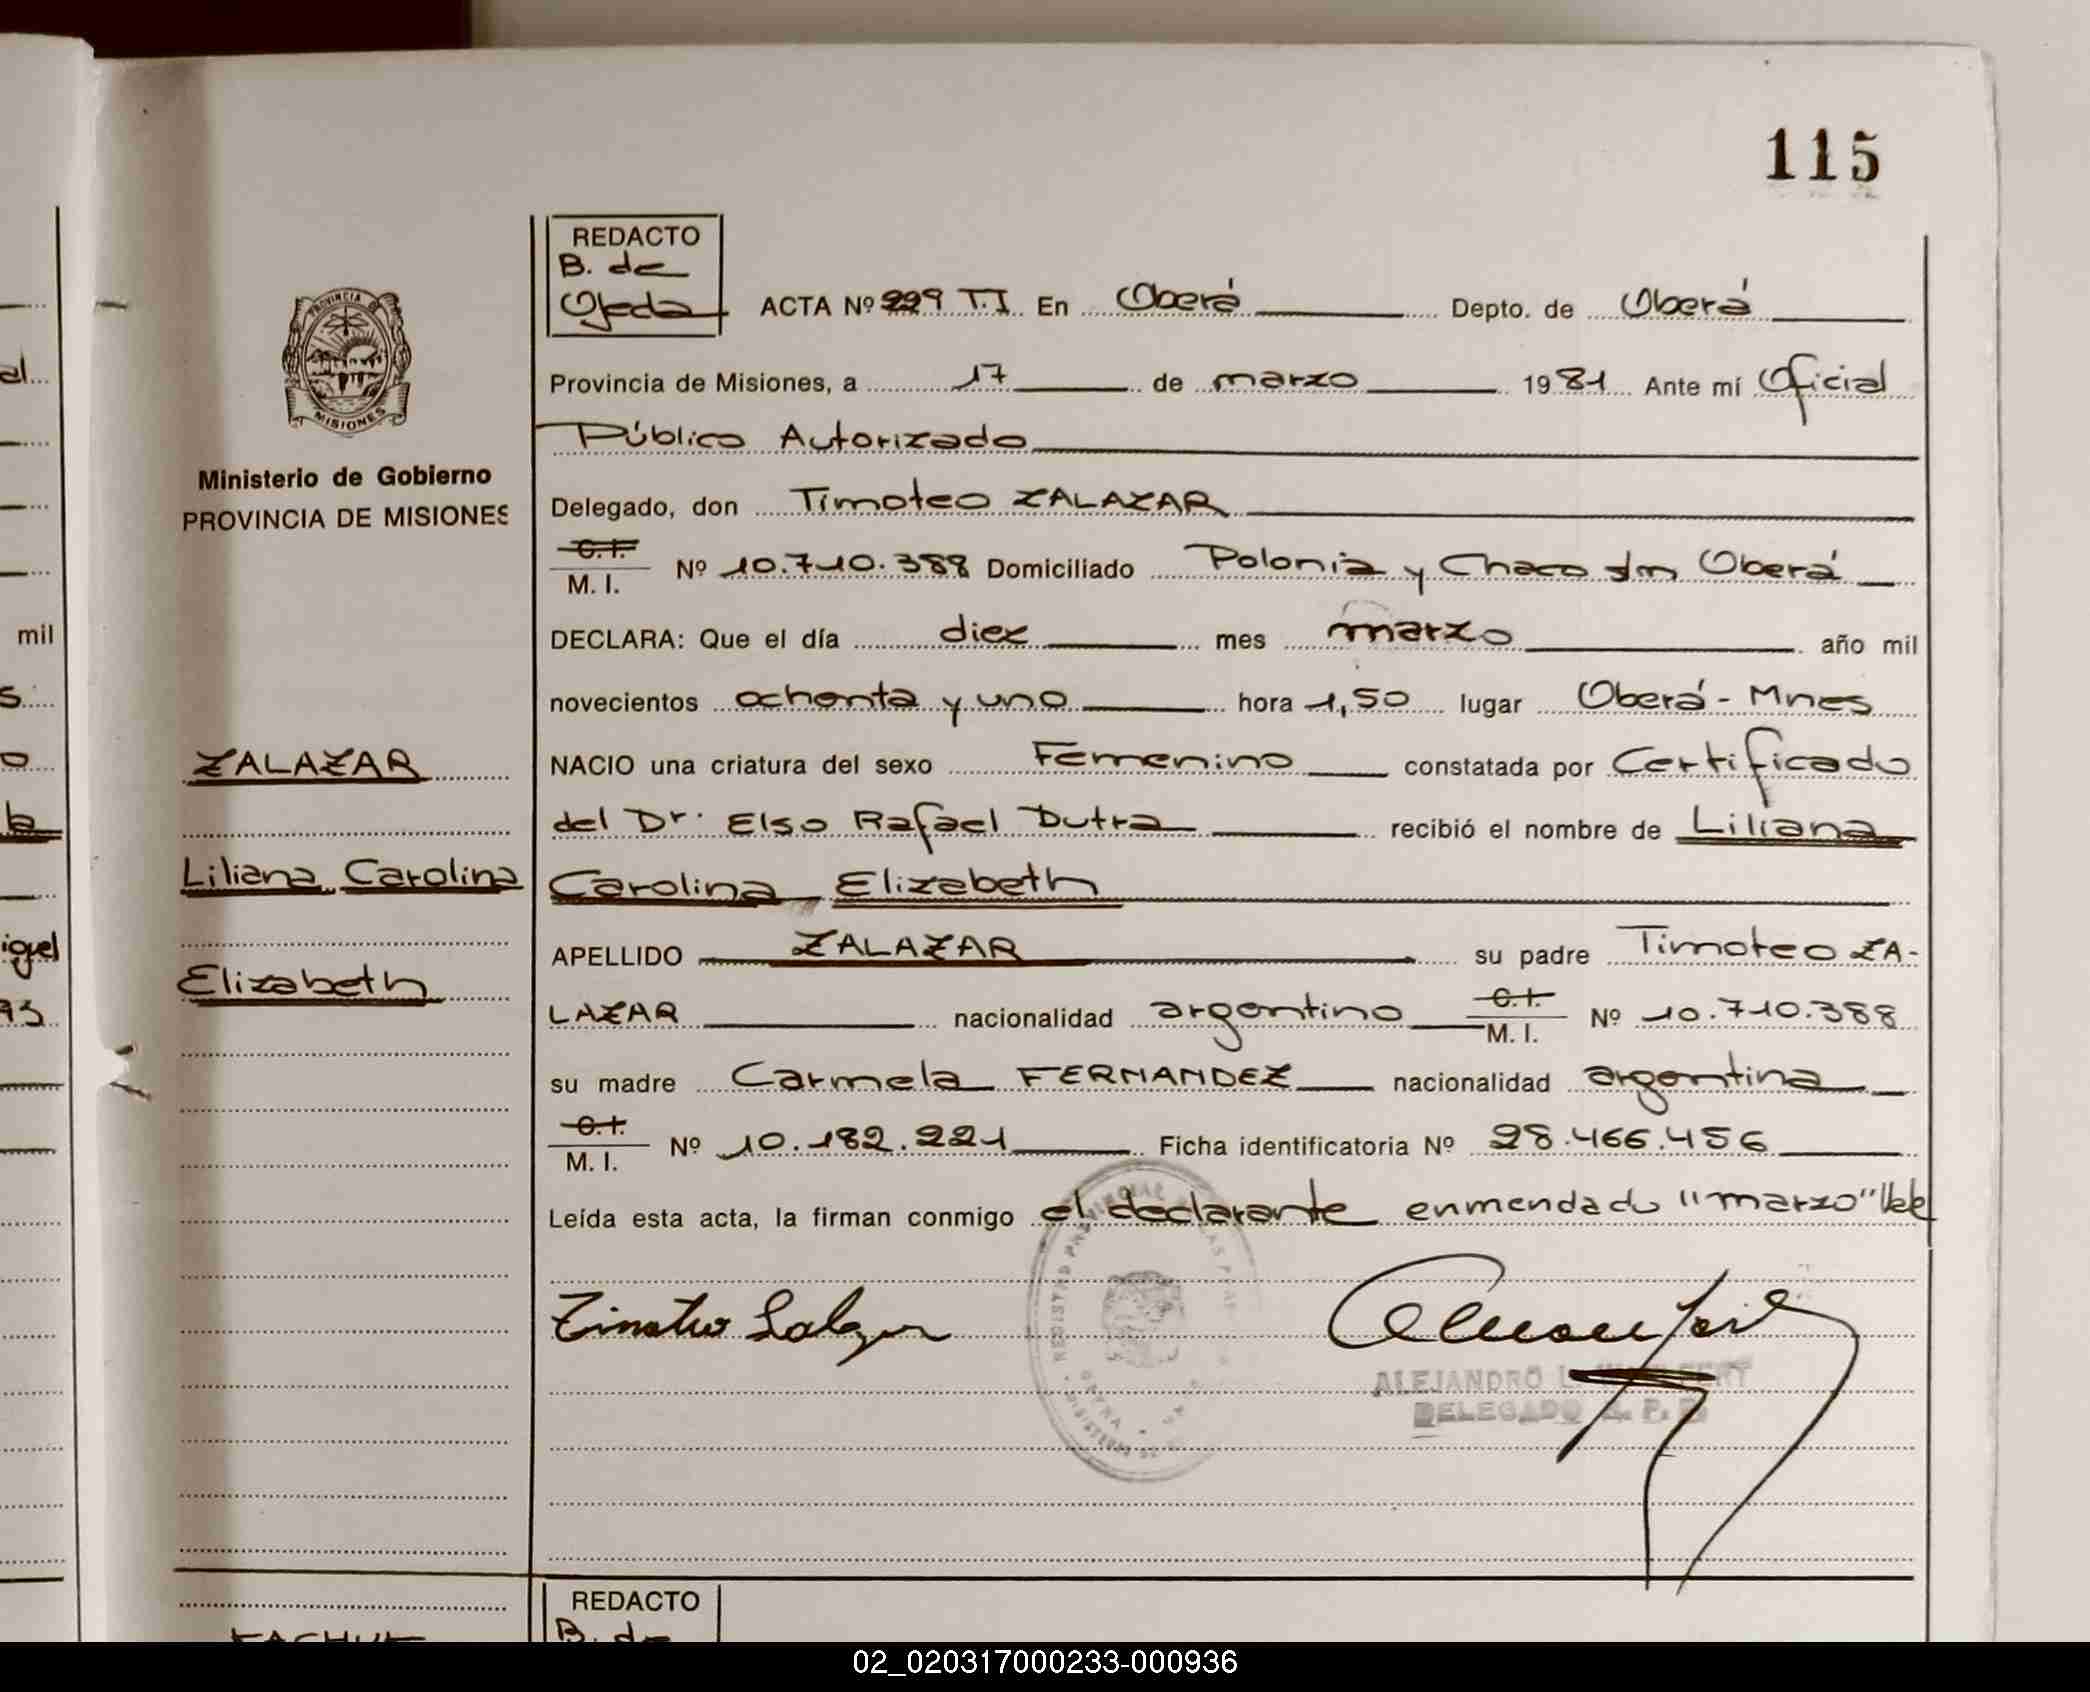 115
REDACTO
B. de
Ojeda
ACTA Nº 229 T.I. En Oberá Depto. de Oberá
Provincia de Misiones, a 17 de marzo 1981 Ante mí Oficial
Público Autorizado
PROVINCIA DE
MISIONES
Ministerio de Gobierno
PROVINCIA DE MISIONES
Delegado, don Timoteo ZALAZAR
C.I.
M. I. Nº 10.710.388 Domiciliado Polonia y Chaco s/n Oberá
DECLARA: Que el día diez mes marzo año mil
novecientos ochenta y uno hora 1,50 lugar Oberá - Mnes
NACIO una criatura del sexo Femenino constatada por Certificado
del Dr. Elso Rafael Dutra recibió el nombre de Liliana
Carolina Elizabeth
APELLIDO ZALAZAR su padre Timoteo ZA-
LAZAR nacionalidad argentino C.I. M. I. Nº 10.710.388
su madre Carmela FERNANDEZ nacionalidad argentina
C.I.
M. I. Nº 10.182.221 Ficha identificatoria Nº 28.466.456
Leída esta acta, la firman conmigo el declarante enmendado "marzo" Vale
ZALAZAR
Liliana Carolina
Elizabeth
Timoteo Salazar
ALEJANDRO L.
DELEGADO R. P. P.
REGISTRO PROVINCIAL DE LAS PERSONAS
OBERA
REDACTO
B. de
mil
al
s
o
igel
93
02_020317000233-000936